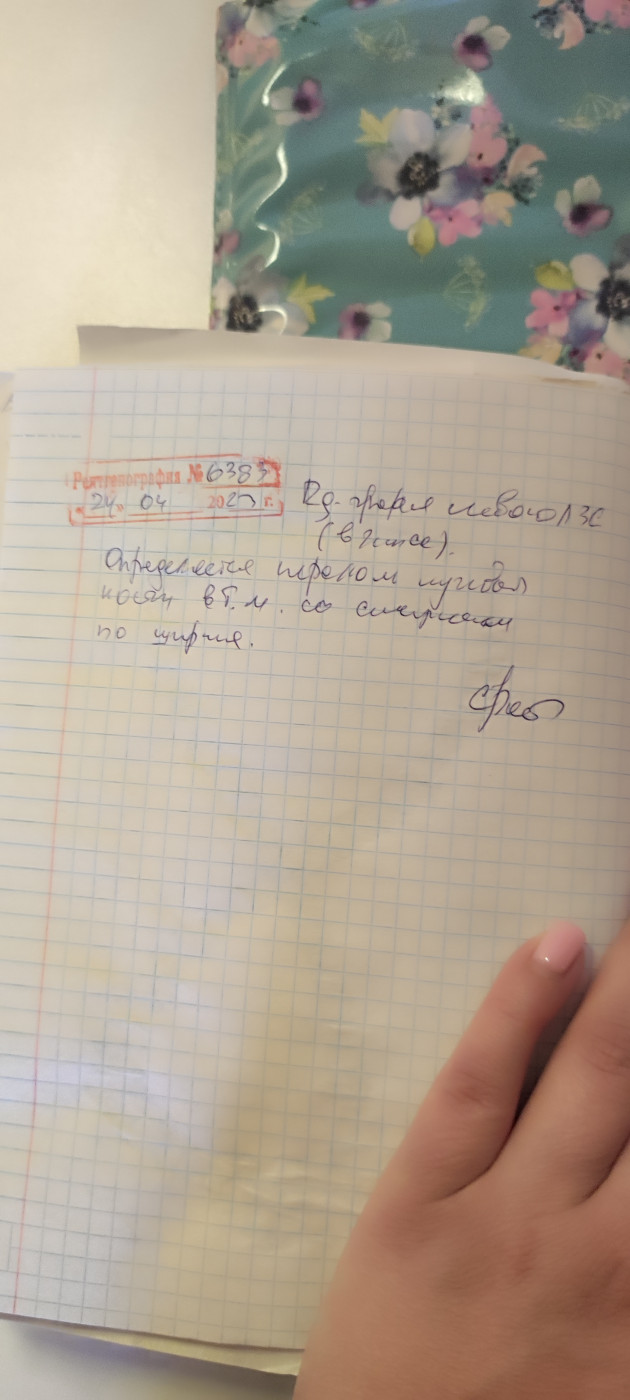 Рентгенография № 6383
"24" 04 2025 г.
Rg-графия левого ЛЗС
(в гипсе).
Определяется перелом лучевой
кости в т.м. со смещением
по ширине.